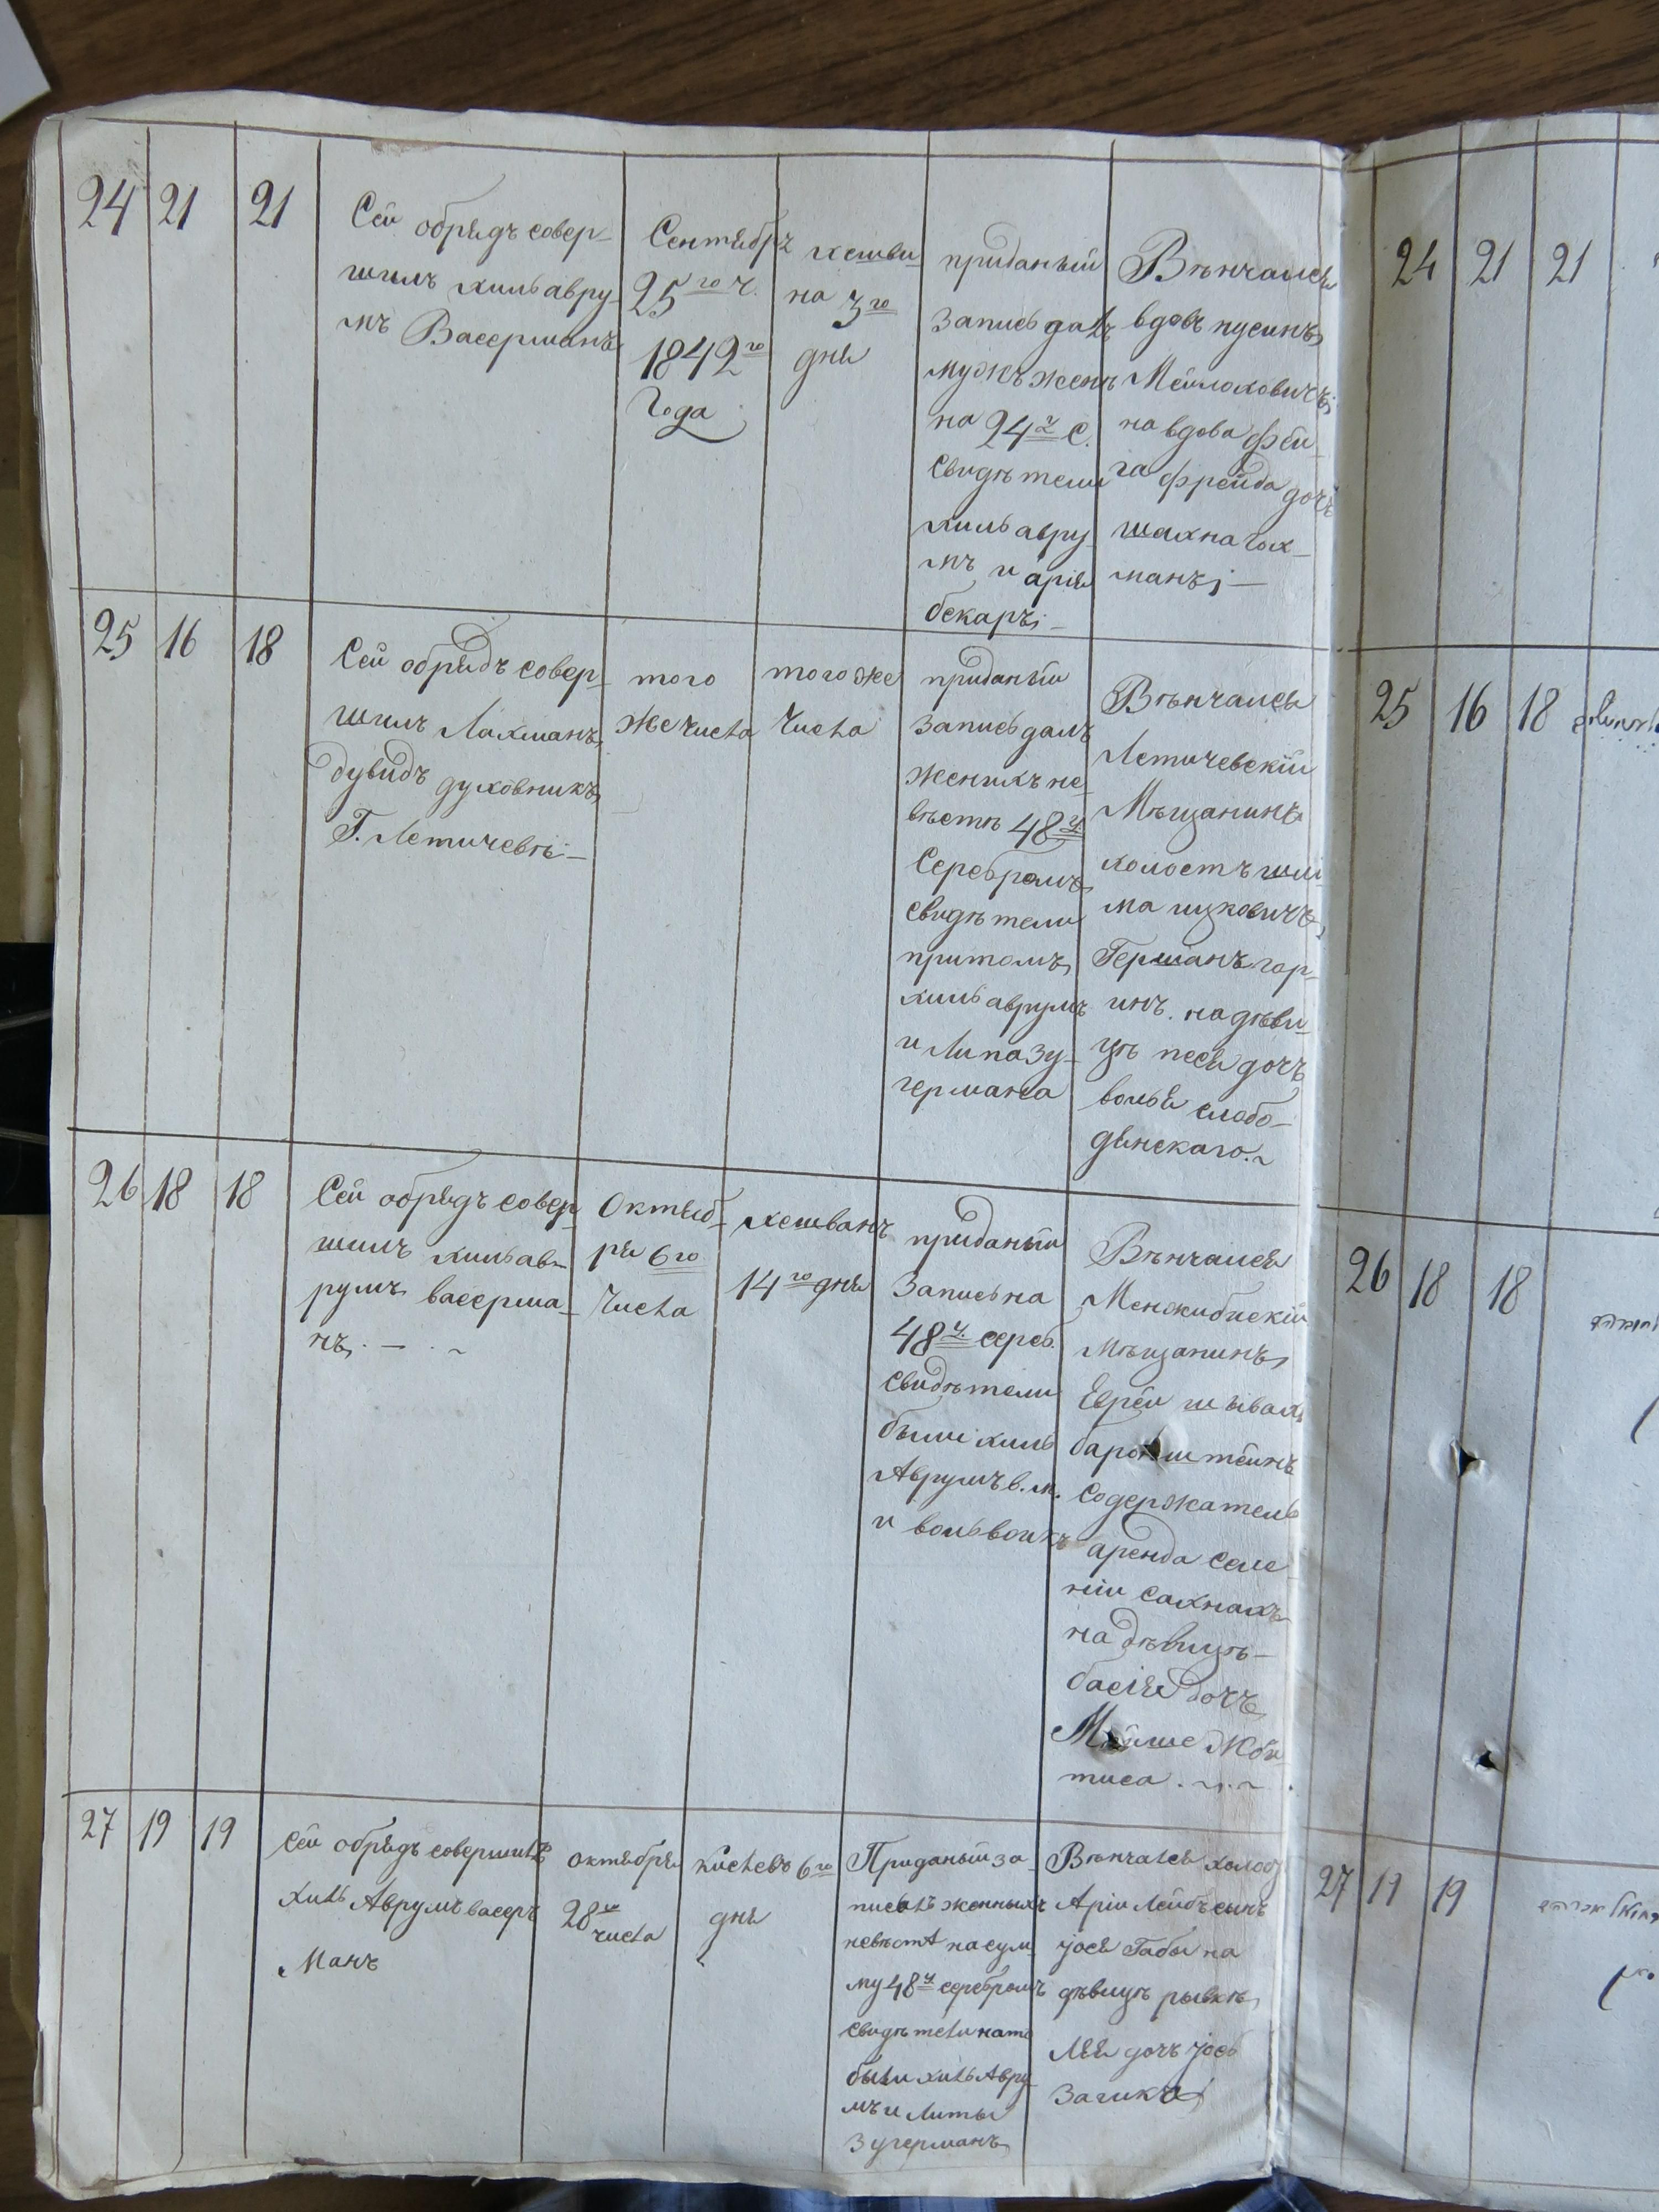 24 21 21
Сей обрядъ совер-
шилъ хиль авру-
мъ Васерманъ
Сентябръ
25го ч.
1842го
Года
хешви
на 3го
дня
приданый
запись далъ
мужъ женѣ
на 24ч С.
свидѣтели
хиль авру-
мъ и арія
бекаръ;
Вѣнчался
вдовъ нусинъ
Мейлоховичъ;
на вдова фей-
га фрейда дочъ
шахна гох-
манъ; —
25 16 18
Сей обрядъ совер-
шилъ Лахманъ,
дувидъ духовникъ,
Г. Летичевѣ; —
того
же числа
того же
числа
приданый
запись далъ
женихъ не-
вѣстѣ 48ч
Серебромъ
свидѣтели
притомъ,
хиль аврумъ
и Липа Зу-
германа
Вѣнчался
Летичевскій
Мѣщанинъ
холостъ шлі-
ма ицковичъ,
Гершанъ гор-
инъ. на дѣви-
цѣ песя дочъ
волья слобо-
дянскаго.
26 18 18
Сей обрядъ совер-
шилъ хиль ав-
румъ васерма-
нъ. —
Октяб-
ря 6го
числа
хешванъ
14го дня
приданый
запись на
48ч. сереб.
свидѣтели
были хиль
Аврумъ в.м.
и вольвоихъ
Вѣнчался
Менжибискій
мѣщанинъ,
Еврей шывахъ
баронштейнъ
содержатель
аренда селе-
ніи сахнахъ
на дѣвицѣ —
басія дочъ
Мейше
тиса
27 19 19
Сей обрядъ совершилъ
хиль Аврумъ васеръ
Манъ
октября
28го
числа
кислевъ 6го
дня
Приданый за-
писалъ женихъ
невѣста на сум-
му 48ч серебромъ
свидѣтели на то
были хиль Авру-
мъ и Липы
Зугерманъ,
Вѣнчался холос
Арій Лейбъ сынъ
іося Габы на
дѣвицѣ рывкѣ,
Лея дочъ іось
Загика
24 21 21
25 16 18
26 18 18
27 19 19